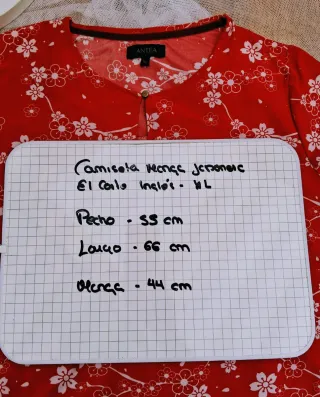 ANTEA
Camiseta Manga Japonesa
El Corte Inglés -
Pecho - 55 cm
Largo - 66 cm
Manga - 44 cm